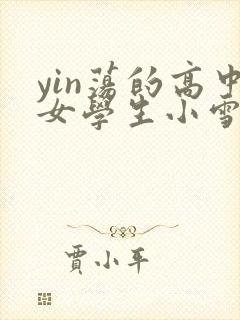 yin蕩的高中
女學生小雪
賈小平